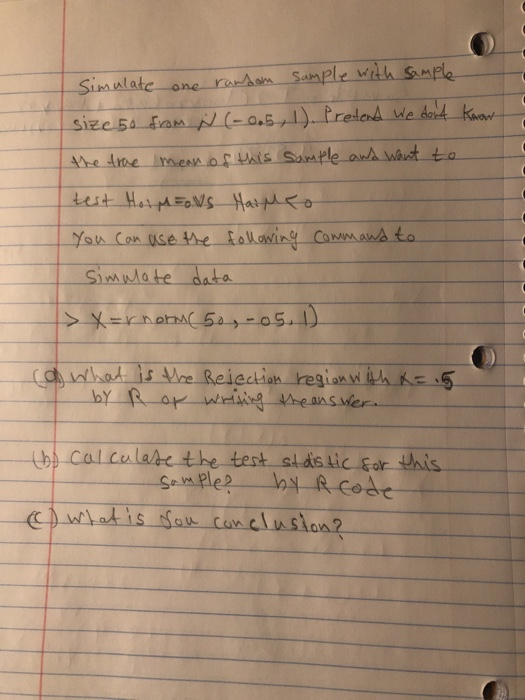 Simulate one random sample with sample
size 50 from N (-0.5, 1). Pretend we don't know
the true mean of this sample and want to
test Ho: μ=0 Vs Ha: μ<0
You can use the following command to
simulate data
> X=rnorm(50, -05, 1)
(a) what is the Rejection region with α = .5
by R or writing the answer.
(b) calculate the test stdistic for this
sample? by R code
(c) what is you conclusion?